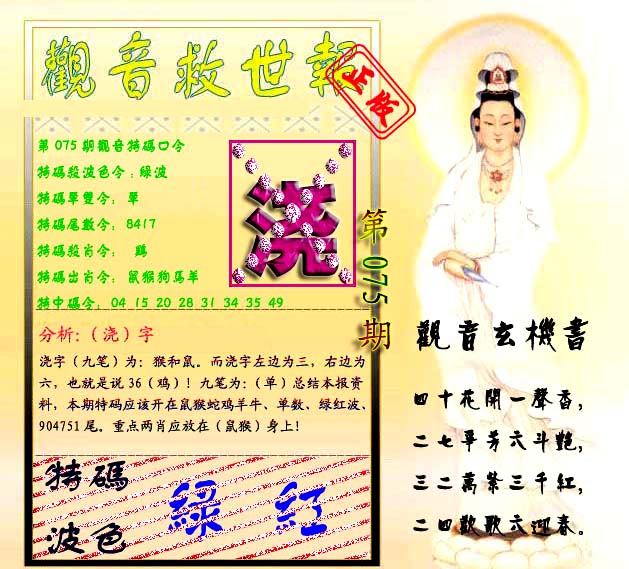 觀音救世報
正版
第 075 期觀音特碼口令
特碼殺波色令：綠波
特碼單雙令： 單
特碼尾數令： 8417
特碼殺肖令： 鷄
特碼出肖令： 鼠猴狗馬羊
特中碼令： 04 15 20 28 31 34 35 49
浇
第075期
分析:（浇）字
浇字（九笔）为：猴和鼠。而浇字左边为三，右边为
六，也就是说 36（鸡）！九笔为：（单）总结本报资
料，本期特码应该开在鼠猴蛇鸡羊牛、单数、绿红波、
904751 尾。重点两肖应放在（鼠猴）身上！
特碼
波色
綠 紅
觀音玄機書
四十花開一聲香，
二七爭芳六斗艷，
三二萬紫三千紅，
二四歡歌六迎春。